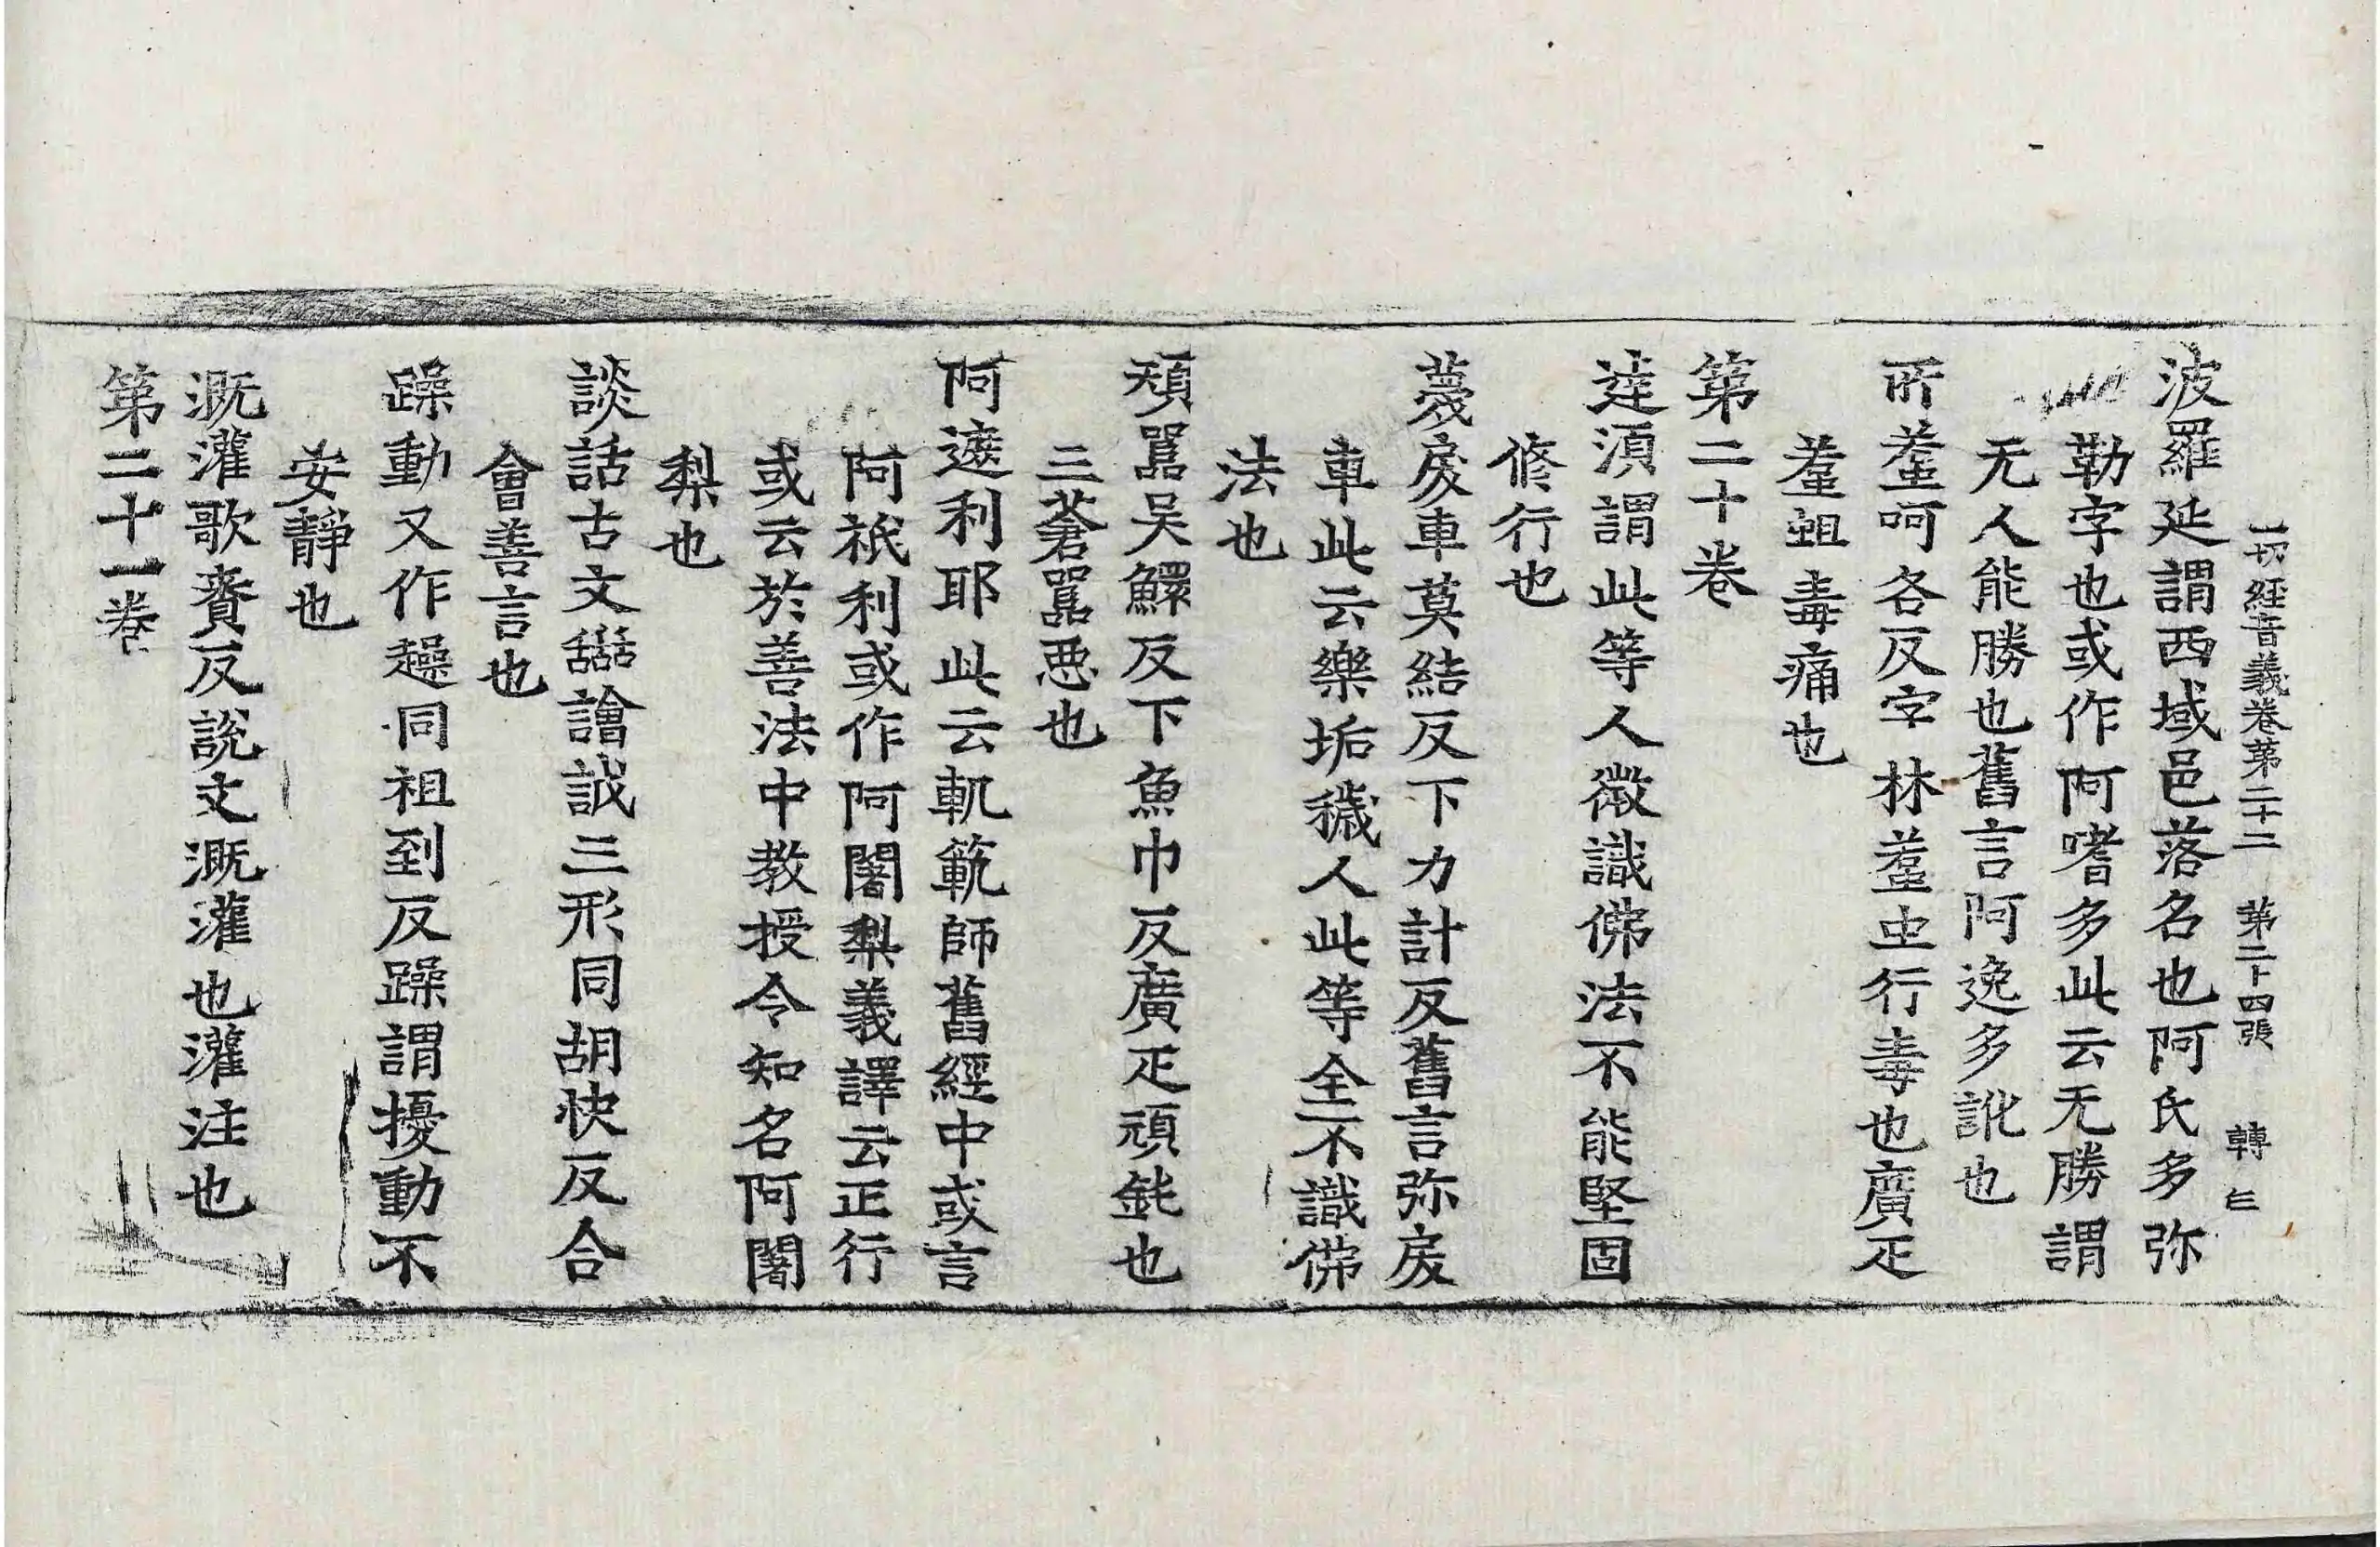 一切經音義卷第二十二 第二十四張 轉
波羅延謂西域邑落名也阿氏多弥
勒字也或作阿嗜多此云无勝謂
无人能勝也舊言阿逸多訛也
所蠚呵各反字林蠚虫行毒也廣疋
蠚蛆毒痛也
第二十卷
達須謂此等人微識佛法不能堅固
修行也
蔑戾車莫結反下力計反舊言弥戾
車此云樂垢穢人此等全不識佛
法也
頑嚚吴鰥反下魚巾反廣疋頑鈍也
三蒼嚚惡也
阿遮利耶此云軌範師舊經中或言
阿祇利或作阿闍梨義譯云正行
或云於善法中教授令知名阿闍
梨也
談話古文譮䛡三形同胡快反合
會善言也
躁動又作趮同祖到反躁謂擾動不
安靜也
溉灌歌賚反說文溉灌也灌注也
第二十一卷